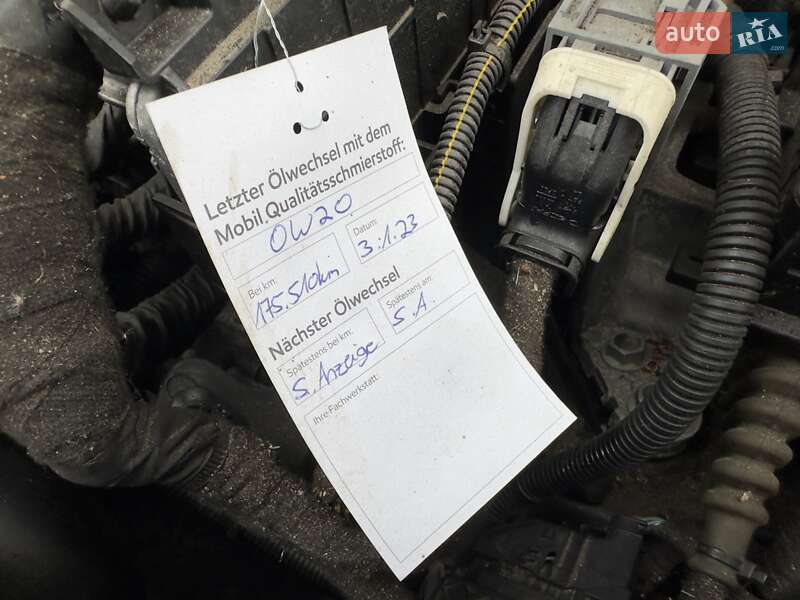 auto RIA.com
Letzter Ölwechsel mit dem
Mobil Qualitätsschmierstoff:
0W20
Bei km:
175.510km
Datum:
3.1.23
Nächster Ölwechsel
Spätestens bei km:
S. Anzeige
Spätestens am:
S. A.
Ihre Fachwerkstatt: